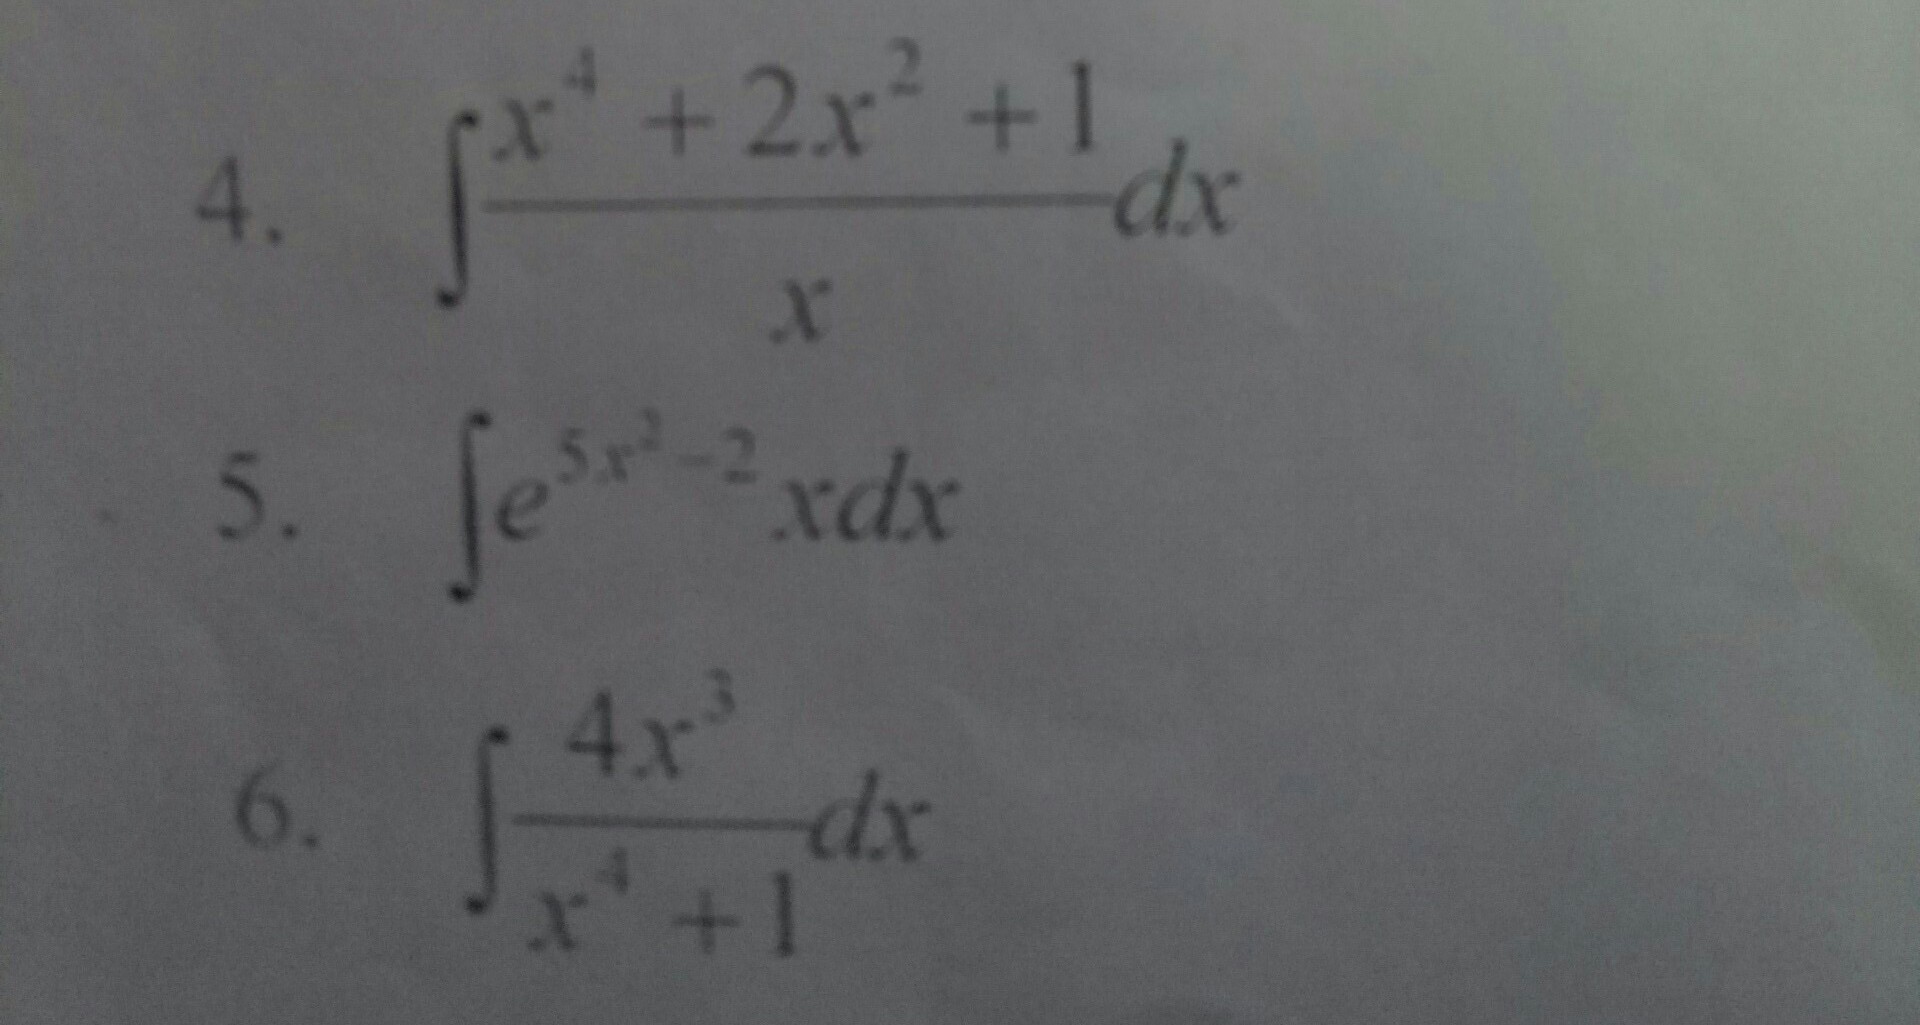 4. ∫ (x⁴ + 2x² + 1)/x dx
5. ∫ e^(5x² − 2) x dx
6. ∫ 4x³/(x⁴ + 1) dx